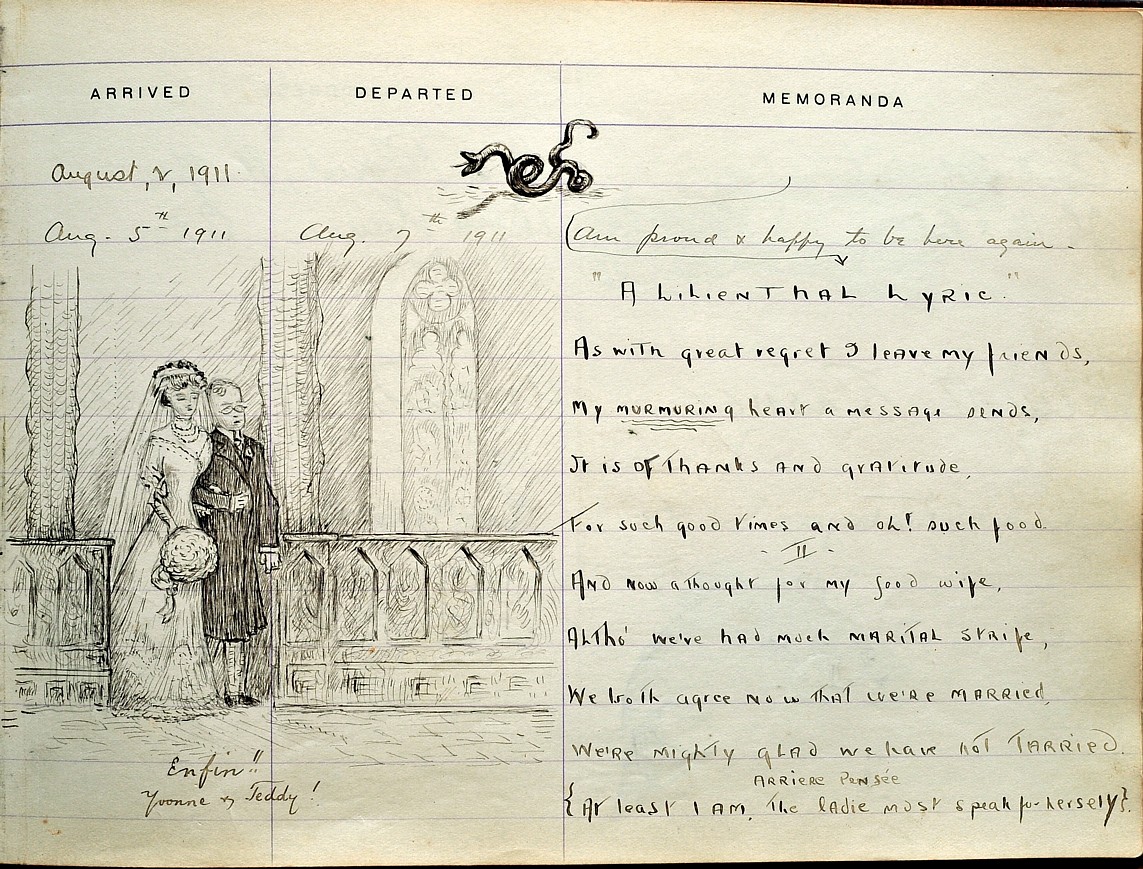 ARRIVED
DEPARTED
MEMORANDA
August, 2, 1911
Aug. 5th 1911
Aug. 7th 1911
(Am proud & happy to be here again -
"A LiLiENTHAL LYRiC."
As with great regret I leave my friends,
My murmuring heart a message sends,
It is of thanks and gratitude,
For such good times and oh! such food.
- II -
And now a thought for my good wife,
Altho' we've had much marital strife,
We both agree now that we're married
We're mighty glad we have not tarried.
ARRIERE PENSÉE
{At least I am, the ladie must speak for herself}.
Enfin!!
Yvonne & Teddy!